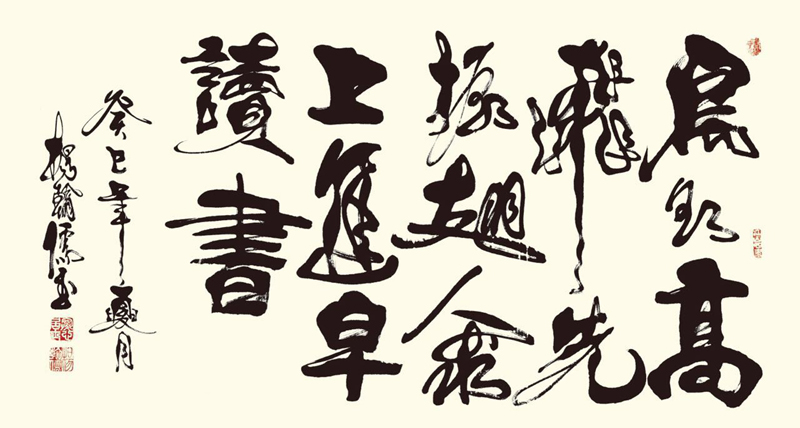 鳥欲高
飛先
振翅人求
上進早
讀書
癸巳年夏月
楊翰儒